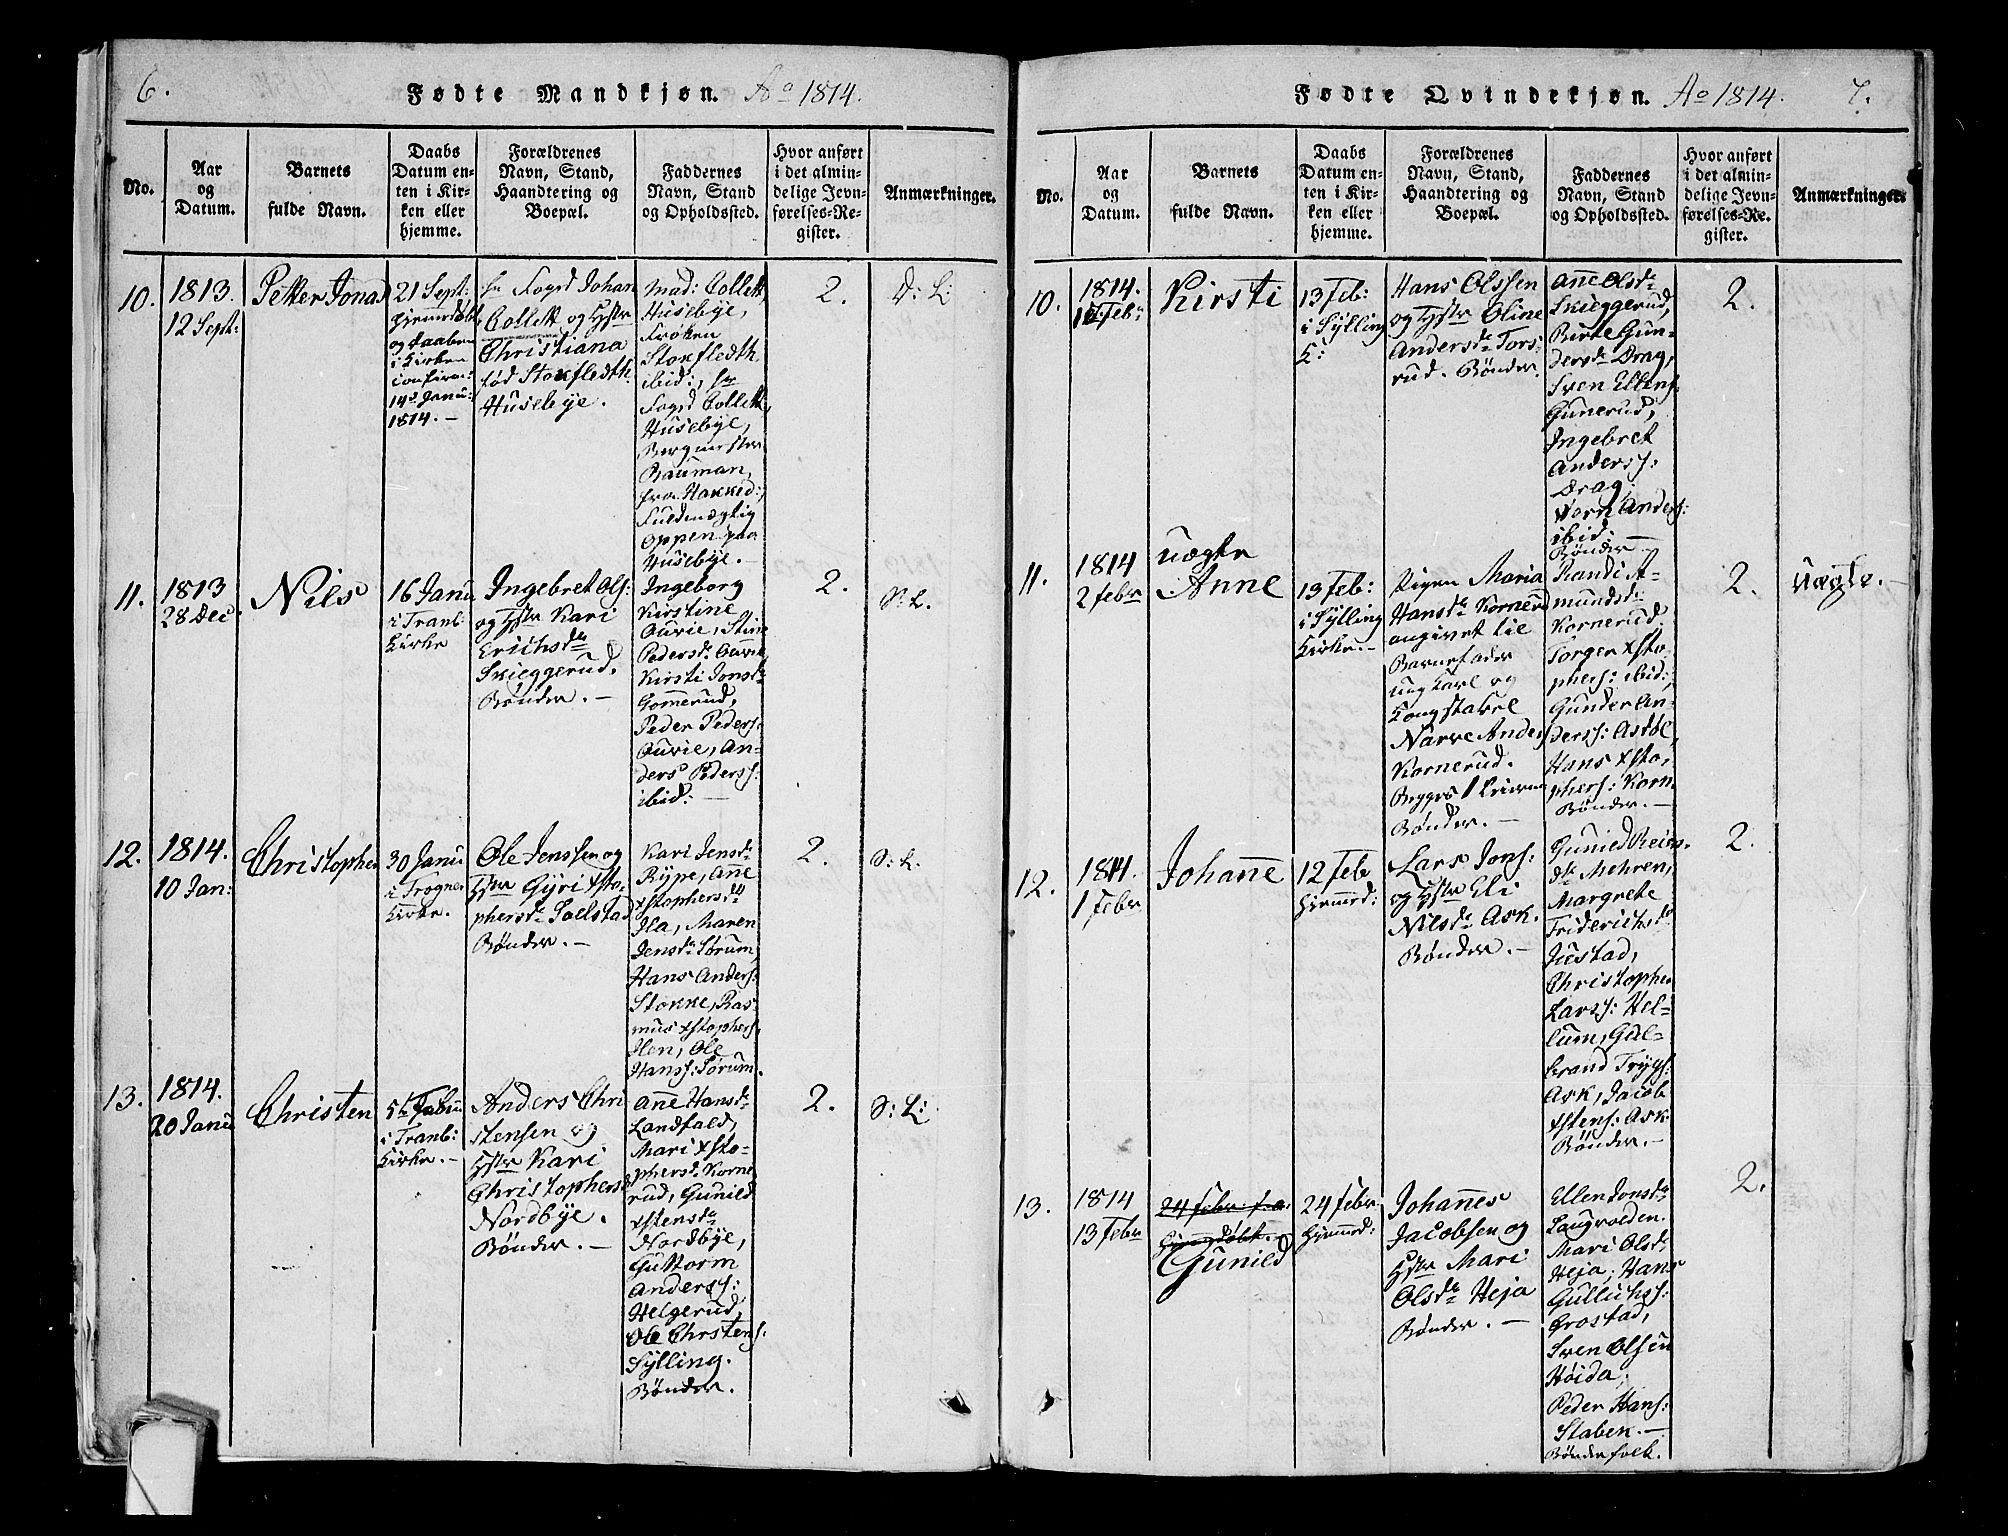 6.
Fødte Mandkjøn. Ao 1814.
No.
Aar
og
Datum.
Barnets
fulde Navn.
Daabs
Datum en-
ten i Kir-
ken eller
hjemme.
Forældrenes
Navn, Stand,
Haandtering og
Boepæl.
Faddernes
Navn, Stand
og Opholdssted.
Hvor anført
i det almin-
delige Jevn-
førelses-Re-
gister.
Anmærkninger.
10.
1813.
12 Sept:
Petter Jonas
21 Sept:
Hjemedøbt
og daaben
i Kirken
confirm:
14d Janu:
1814. —
hr Fogd Johan
Collett og Hstr
Christiana
fød Stokfledth
Husebye.
Mad: Collett
Husebye,
Frøken
Stokfledth
ibid:, hr
Fogd Collett
Husebye,
Bergmester
Bauman
fra Hakked:,
Fuldmægtig
Oppen paa
Husebye. —
2.
D: L:
11.
1813
28 Dec.
Nils
16 Janu
i Tranb:
Kirke
Ingebret Ols:
og Hstr Kari
Erichsdr
Skieggerud.
Bønder. —
Ingeborg
Kirstine
Ourie, Stine
Pedersdr Ourie,
Kirsti Jonsdr
Gommerud,
Peder Peders:
Ourie, An-
ders Peders:
ibid: —
2.
S: L.
12.
1814.
10 Jan:
Christopher
30 Janu
i Trogner
Kirke.
Ole Jenssen og
Hstr Gyri Xsto-
phersdr Solstad
Bønder. —
Kari Jensdr
Rype, Ane
Xstophersdr
Ila, Maren
Jensdr Sørum,
Hans Anders:
Stokke, Ras-
mus Xstophers:
Ilen, Ole
Hanss: Sørum.
2.
S: L.
13.
1814.
20 Janu
Christen
5te Febru
i Tranb:
Kirke. —
Anders Chri
stensen og
Hstr Kari
Christophersdr
Nordbye.
Bønder. —
Anne Hansdr
Landfald,
Mari Xsto-
phersdr Korne
rud, Gunild
Xstensdr
Nordbye,
Guttorm
Anderss:
Helgerud,
Ole Chrstens:
Sylling.
Bønder.
2.
S: L:
Fødte Qvindekjøn. Ao 1814.
7.
No.
Aar
og
Datum.
Barnets
fulde Navn.
Daabs
Datum en-
ten i Kir-
ken eller
hjemme.
Forældrenes
Navn, Stand,
Haandtering og
Boepæl.
Faddernes
Navn, Stand
og Opholdssted.
Hvor anført
i det almin-
delige Jevn-
førelses-Re-
gister.
Anmærkninger.
10.
1814.
Febr
Kirsti
13 Feb:
i Sylling
K:
Hans Olssen
og Hstr Oline
Andersdr Tors
rud. Bønder.
Anne Olsdr
Skieggerud,
Birte Gun-
dersdr Drag,
Sven Ellens:
Gunerud,
Ingebret
Anderss:
Drag,
Anders:
ibid:
Bønder —
2.
11.
1814
2 Febr
Uægte
Anne
13 Feb:
i Sylling
Kirke. —
Pigen Maria
Hansdr Kornerud
angivet til
Barnefader
ung Karl og
Narve Anders
Kornerud.
Bønder. —
Randi A-
mundsdr
Kornerud.
Torger Xsto-
phers: ibid:,
Gunder An-
derss: Asdøl,
Hans Xsto-
phers: Korn
Bønder. —
2.
Uægte. —
12.
1814.
1 Febr
Johanne
12 Feb
Hjemmed:
Lars Jons:
og Hstr Eli
Nilsdr Ask.
Bønder. —
Gunild Reiers-
dr Mehren,
Margrete
Friderichsdr
Justad,
Christopher
Larss: Hel-
lum, Gul-
brand Trygs:
Ask, Jacob
Xstens: Ask
Bønder. —
2.
13.
1814
13 Febr
24 Febr. f. a.
Hjemdøbt.
Gunild
24 Febr
Hjemmed:
Johannes
Jacobsen og
Hstr Mari
Olsdr Heja
Bønder. —
Ellen Jonsdr
Mari Olsdr
Heja, Hans
Gullichss:
Grostad,
Sven Olsen
Høida,
Peder Hans:
Staben. —
Bønderfolk.
2.